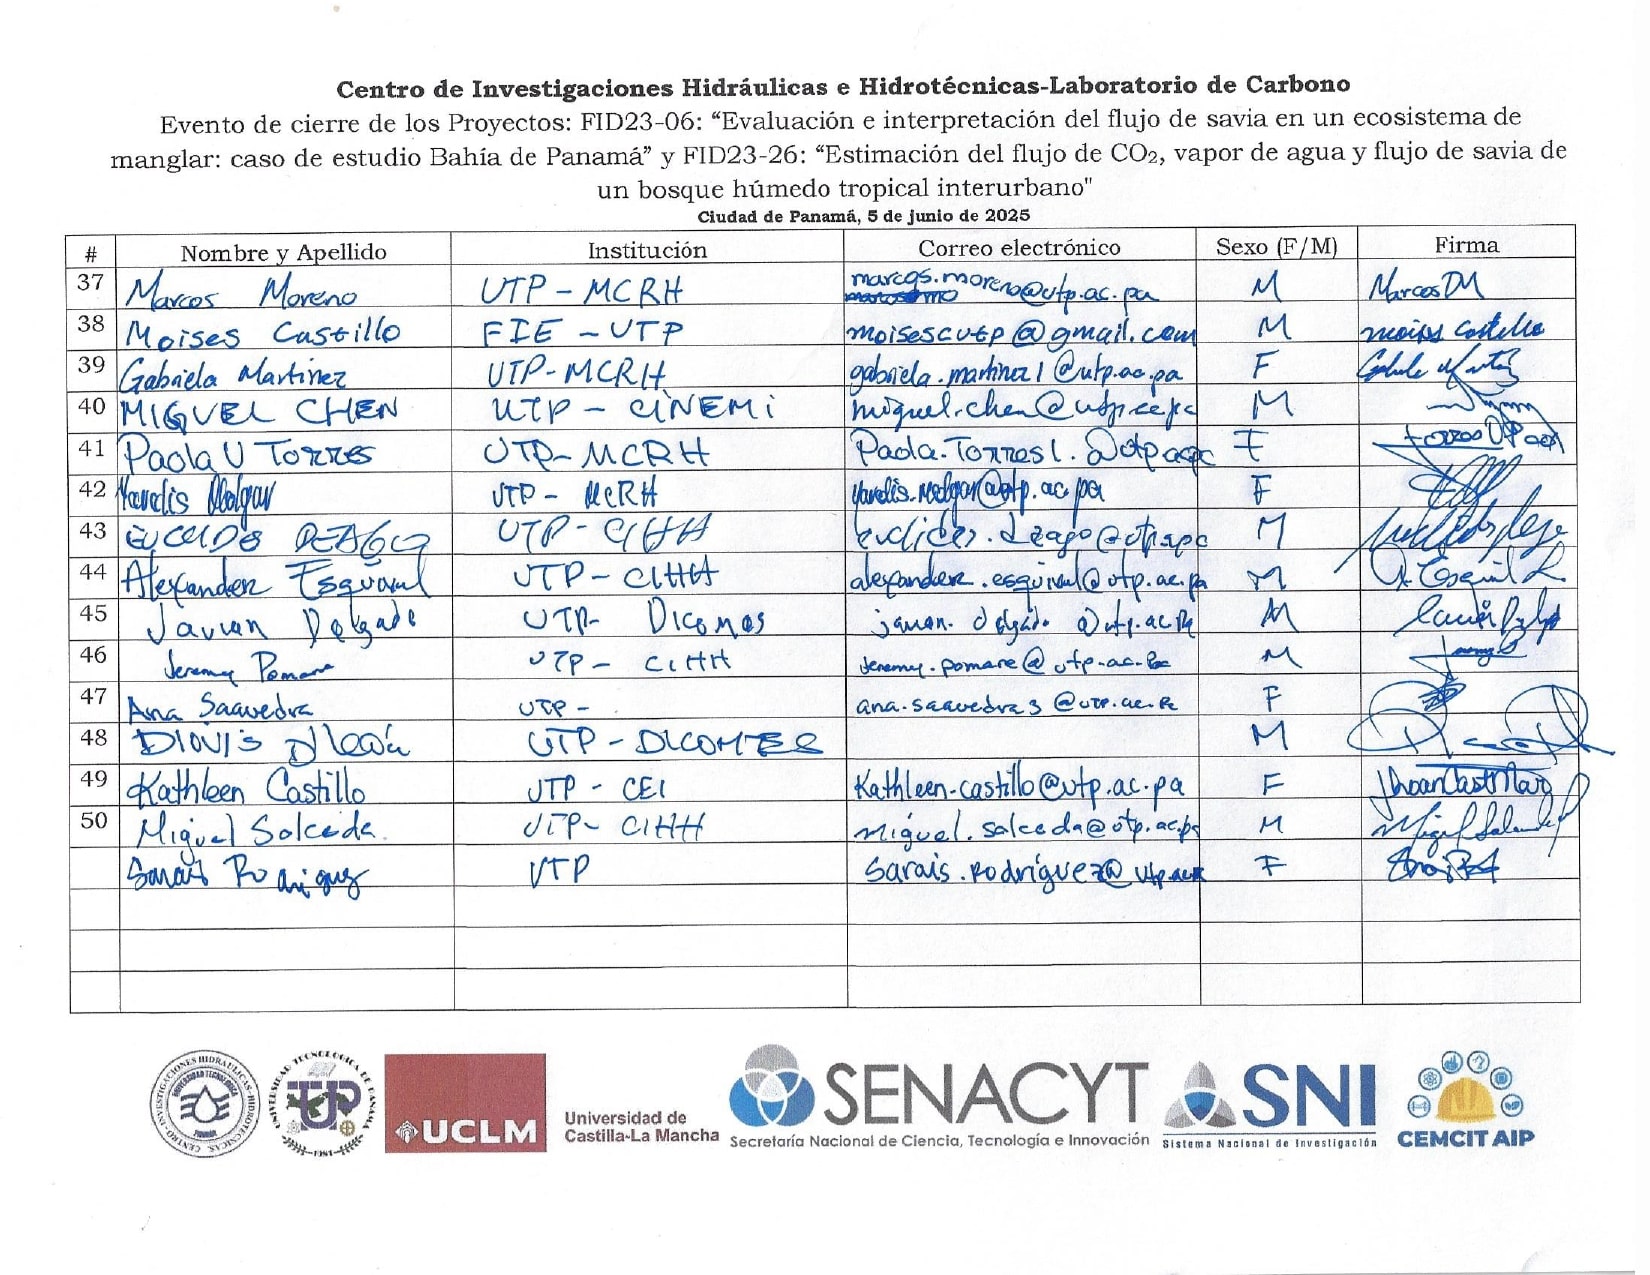 Centro de Investigaciones Hidráulicas e Hidrotécnicas-Laboratorio de Carbono
Evento de cierre de los Proyectos: FID23-06: “Evaluación e interpretación del flujo de savia en un ecosistema de
manglar: caso de estudio Bahía de Panamá” y FID23-26: “Estimación del flujo de CO₂, vapor de agua y flujo de savia de
un bosque húmedo tropical interurbano"
Ciudad de Panamá, 5 de junio de 2025
# Nombre y Apellido Institución Correo electrónico Sexo (F/M) Firma
37 Marcos Moreno UTP - MCRH marcos.moreno@utp.ac.pa M Marcos DM
38 Moises Castillo FIE - UTP moisescutp@gmail.com M Moises Castillo
39 Gabriela Martinez UTP-MCRH gabriela.martinez1@utp.ac.pa F
40 MIGUEL CHEN UTP - CINEMI miguel.chen@utp.ac.pa M
41 Paola U Torres UTP-MCRH Paola.Torres1.@utp.ac.pa F
42 Yaredis Melgar UTP - MCRH yaredis.melgar@utp.ac.pa F
43 UTP - CIHH euclides.deago@utp.ac.pa M
44 Alexander Esquivel UTP - CIHH alexander.esquivel@utp.ac.pa M A. Esquivel
45 Javier Delgado UTP- Dicomes javier.delgado@utp.ac.pa M
46 Jeremy Pomare UTP - CIHH Jeremy.pomare@utp.ac.pa M
47 Ana Saavedra UTP - ana.saavedra3@utp.ac.pa F
48 UTP - DICOMES M
49 Kathleen Castillo UTP - CEI Kathleen.castillo@utp.ac.pa F
50 Miguel Salceda. UTP- CIHH miguel.salceda@utp.ac.pa M
Sarais Rodriguez UTP sarais.rodriguez@utp.ac.pa F
CENTRO INVESTIGACIONES HIDRAULICAS-HIDROTECNICAS
UNIVERSIDAD TECNOLOGICA
PANAMA
UNIVERSIDAD TECNOLOGICA DE PANAMA
UTP
-1981-
UCLM
Universidad de
Castilla-La Mancha
SENACYT
Secretaría Nacional de Ciencia, Tecnología e Innovación
SNI
Sistema Nacional de Investigación
CEMCIT AIP